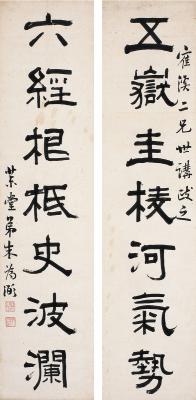 五嶽圭棱河氣勢
二兄世講政之
六經根柢史波瀾
茮堂弟朱為弼